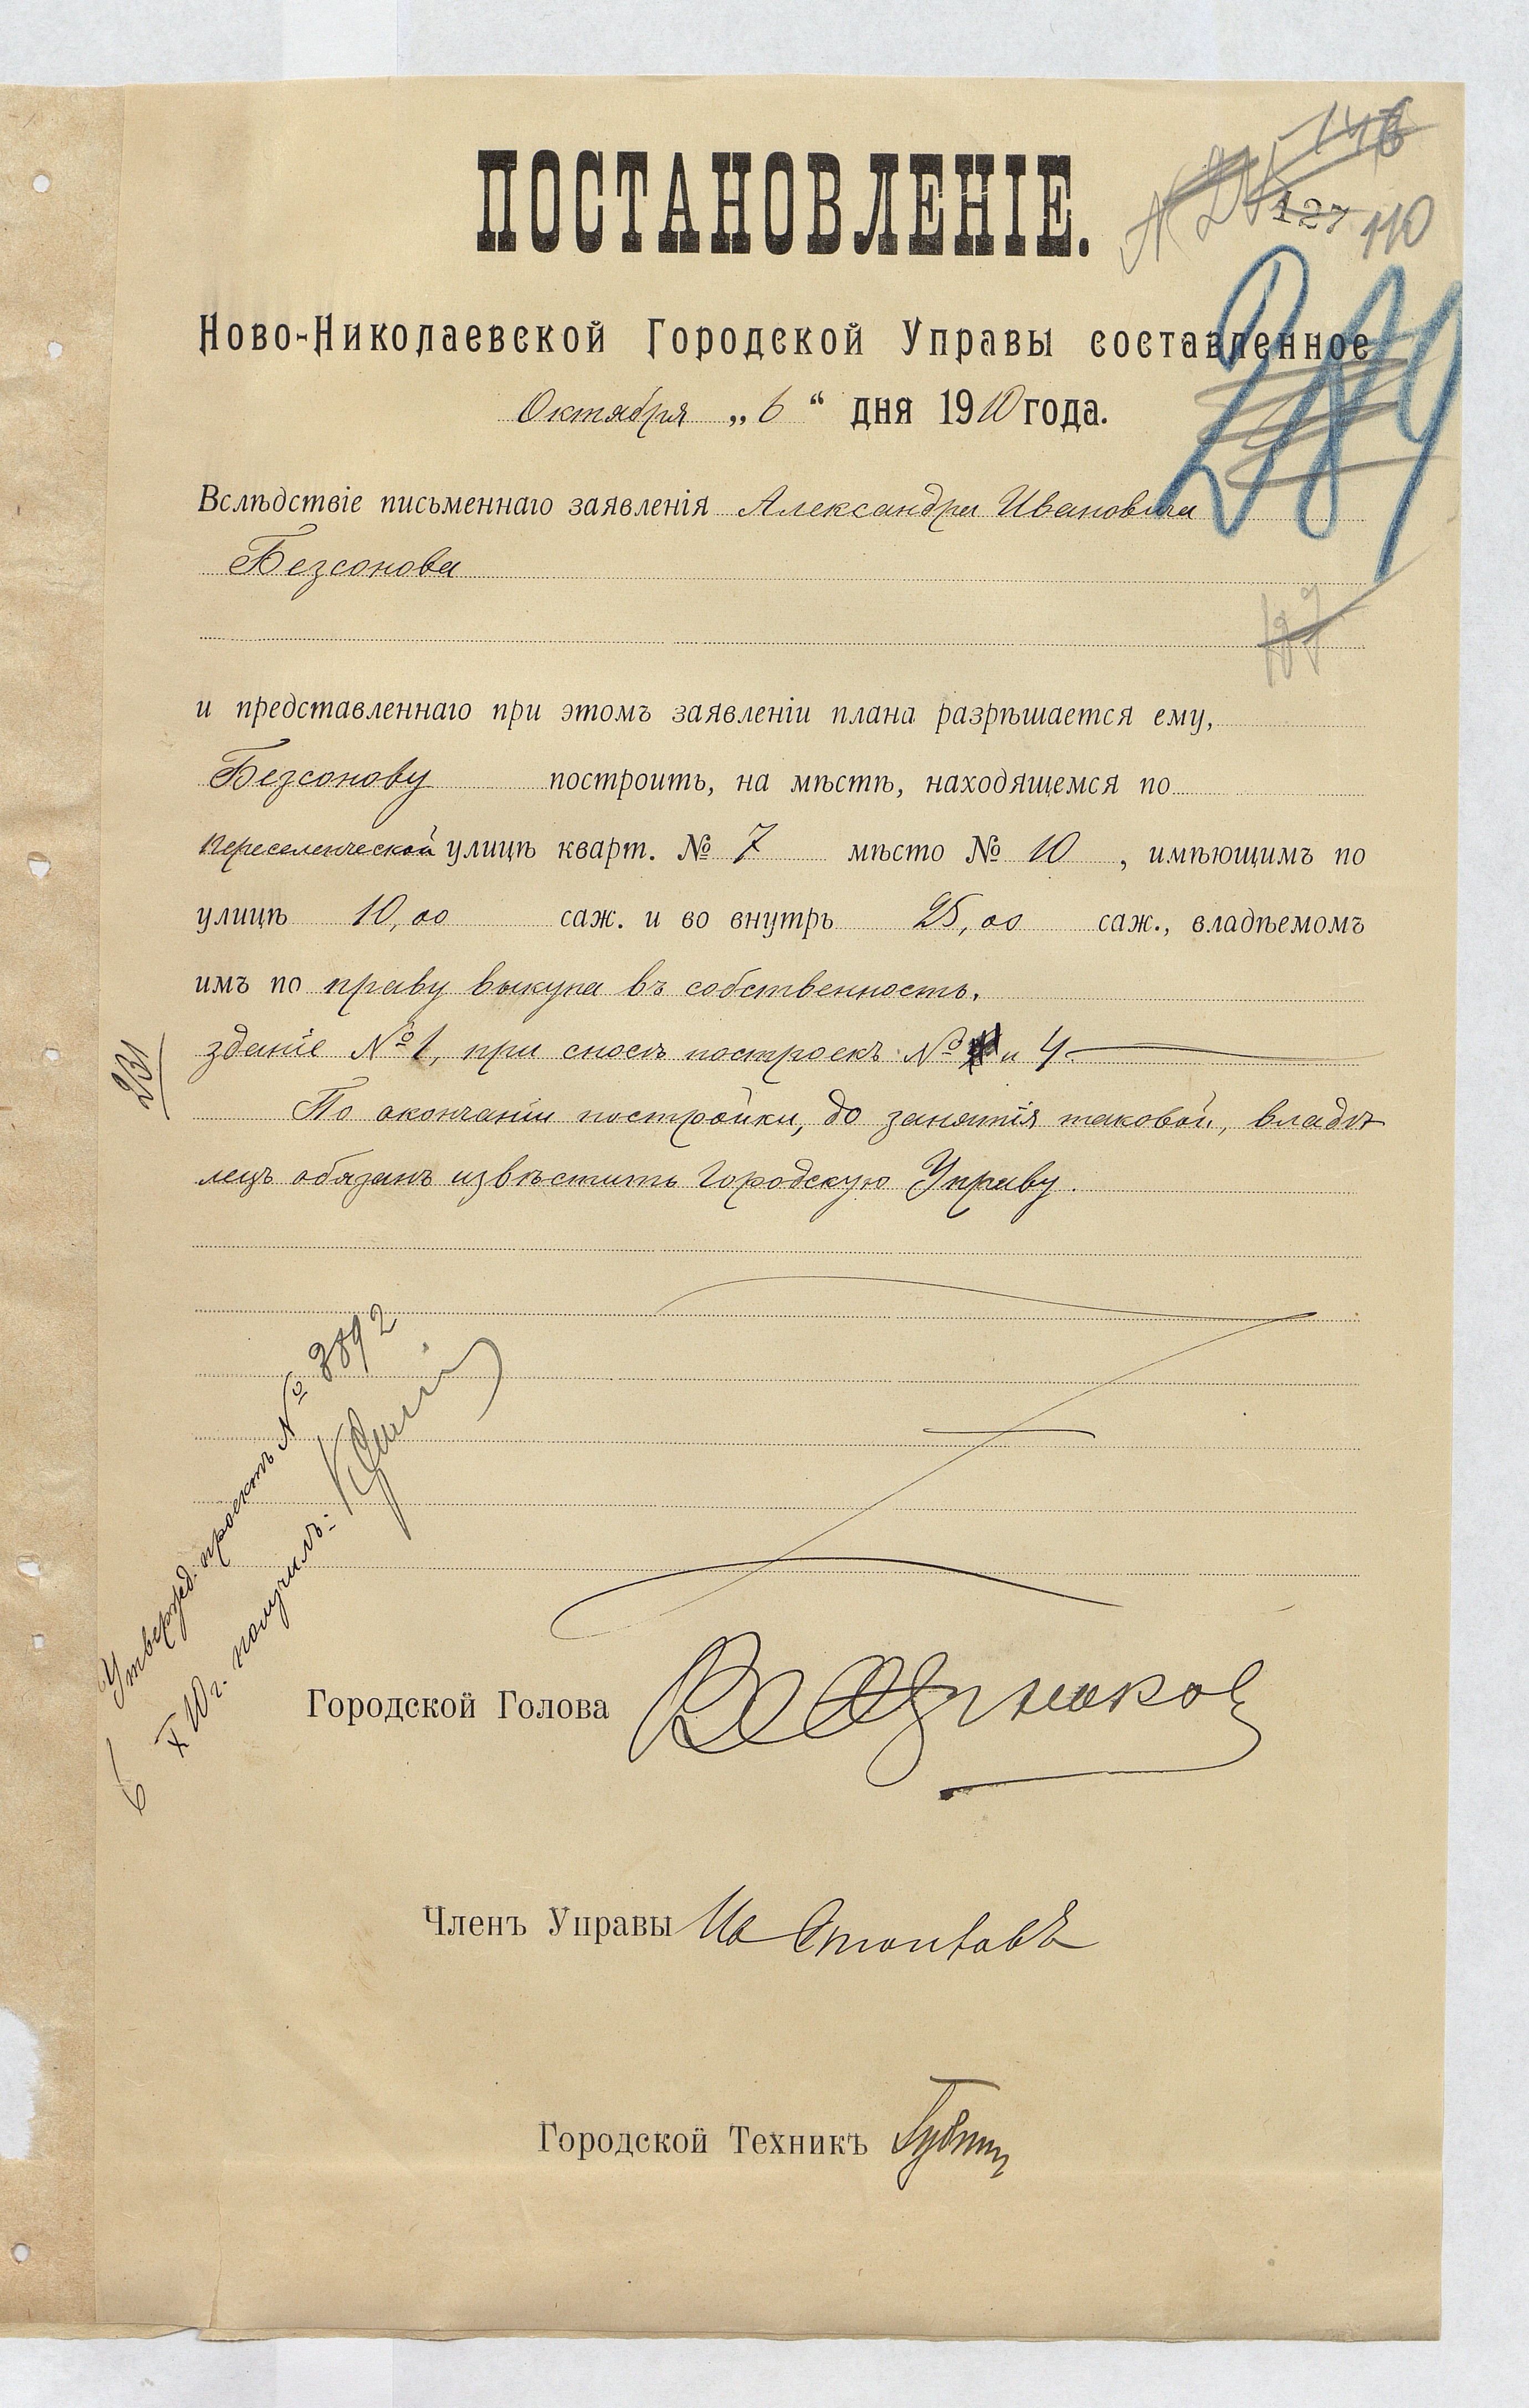 146
127 110
ПОСТАНОВЛЕНІЕ.
289
Ново-Николаевской Городской Управы составленное
Октября „ 6 “ дня 1910 года.
Вслѣдствіе письменнаго заявленія Александра Ивановича
Безсонова
и представленнаго при этомъ заявленіи плана разрѣшается ему,
Безсонову построить, на мѣстѣ, находящемся по
Переселенческой улицѣ кварт. № 7 мѣсто № 10 , имѣющимъ по
улицѣ 10,00 саж. и во внутрь 25,00 саж., владѣемомъ
имъ по праву выкупа въ собственность.
зданіе № 1, при сносѣ построекъ № и 4
231
По окончаніи постройки, до занятія таковой, владѣ
лецъ обязанъ извѣстить Городскую Управу.
Утвержд. проектъ № 3892
6 X 10 г. получилъ:
Городской Голова
Членъ Управы
Городской Техникъ